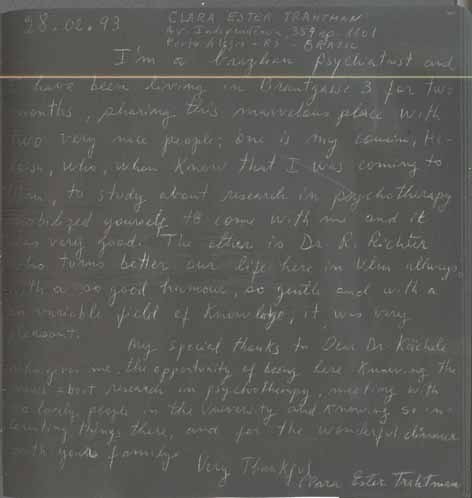 28.02.93
CLARA ESTER TRAHTMAN
Av. Independência, 354 ap. 1101
Porto Alegre - RS - BRASIL
I'm a brazilian psychiatrist and
have been living in Brautgasse 3 for two
months, sharing this marvelous place with
two very nice people; one is my cousin, He-
who, when know that I was coming to
Ulm, to study about research in psychotherapy
mobilized yourself to come with me and it
was very good. The other is Dr. R. Richter
who turns better our life here in Ulm allways
with a so good humour, so gentle and with a
variable field of knowledge; it was very
pleasant.
My special thanks to Dear Dr. Kächele
me, the opportunity of being here knowing the
about research in psychotherapy, meeting with
lovely people in the University and knowing so in-
teresting things there, and for the wonderful dinner
with your family.
Very Thankful
Clara Ester Trahtman